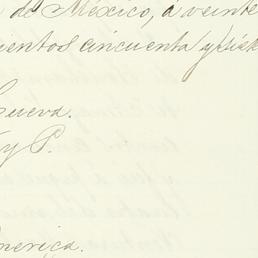 de México, á veinte
cientos cincuenta y siete
Cueva.
y P.
America.